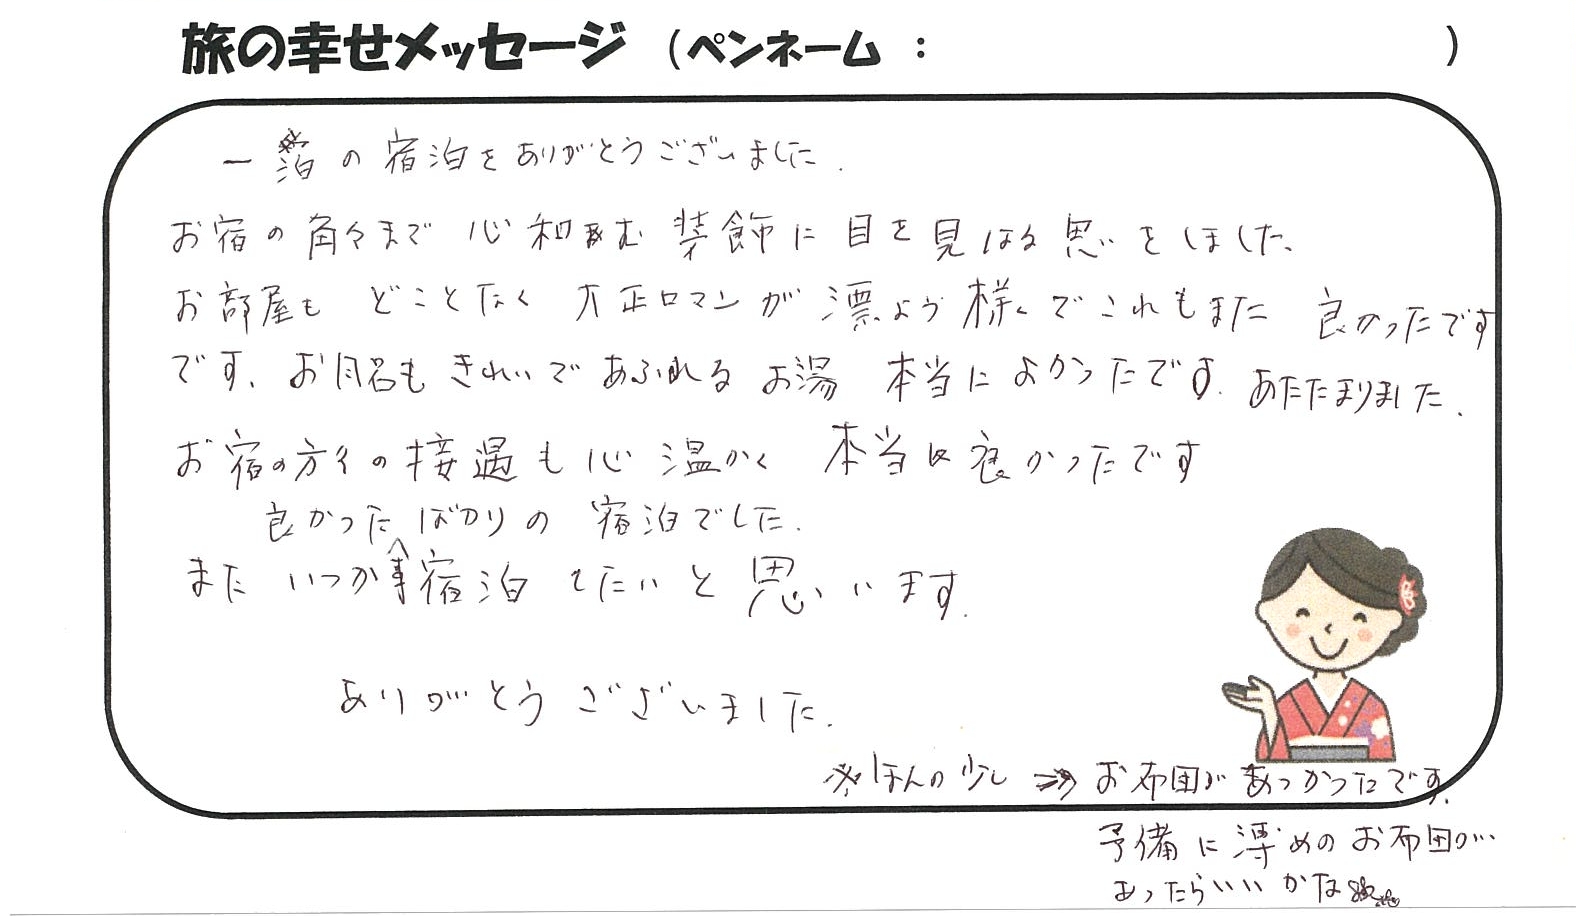 旅の幸せメッセージ （ペンネーム ： ）
一泊の宿泊をありがとうございました.
お宿の角々まで 心和む 装飾に 目を見はる思いをしました、
お部屋も どことなく 大正ロマンが漂よう様でこれもまた 良かったです
です、お風呂も きれいで あふれる お湯 本当に よかったです. あたたまりました.
お宿の方々の接遇も心温かく 本当に良かったです
良かったばかりの 宿泊でした.
また いつか 宿泊 したいと思います.
ありがとう ございました.
※ほんの少し ⇒ お布団が あつかったです.
予備に薄めのお布団が…
あったらいいかな